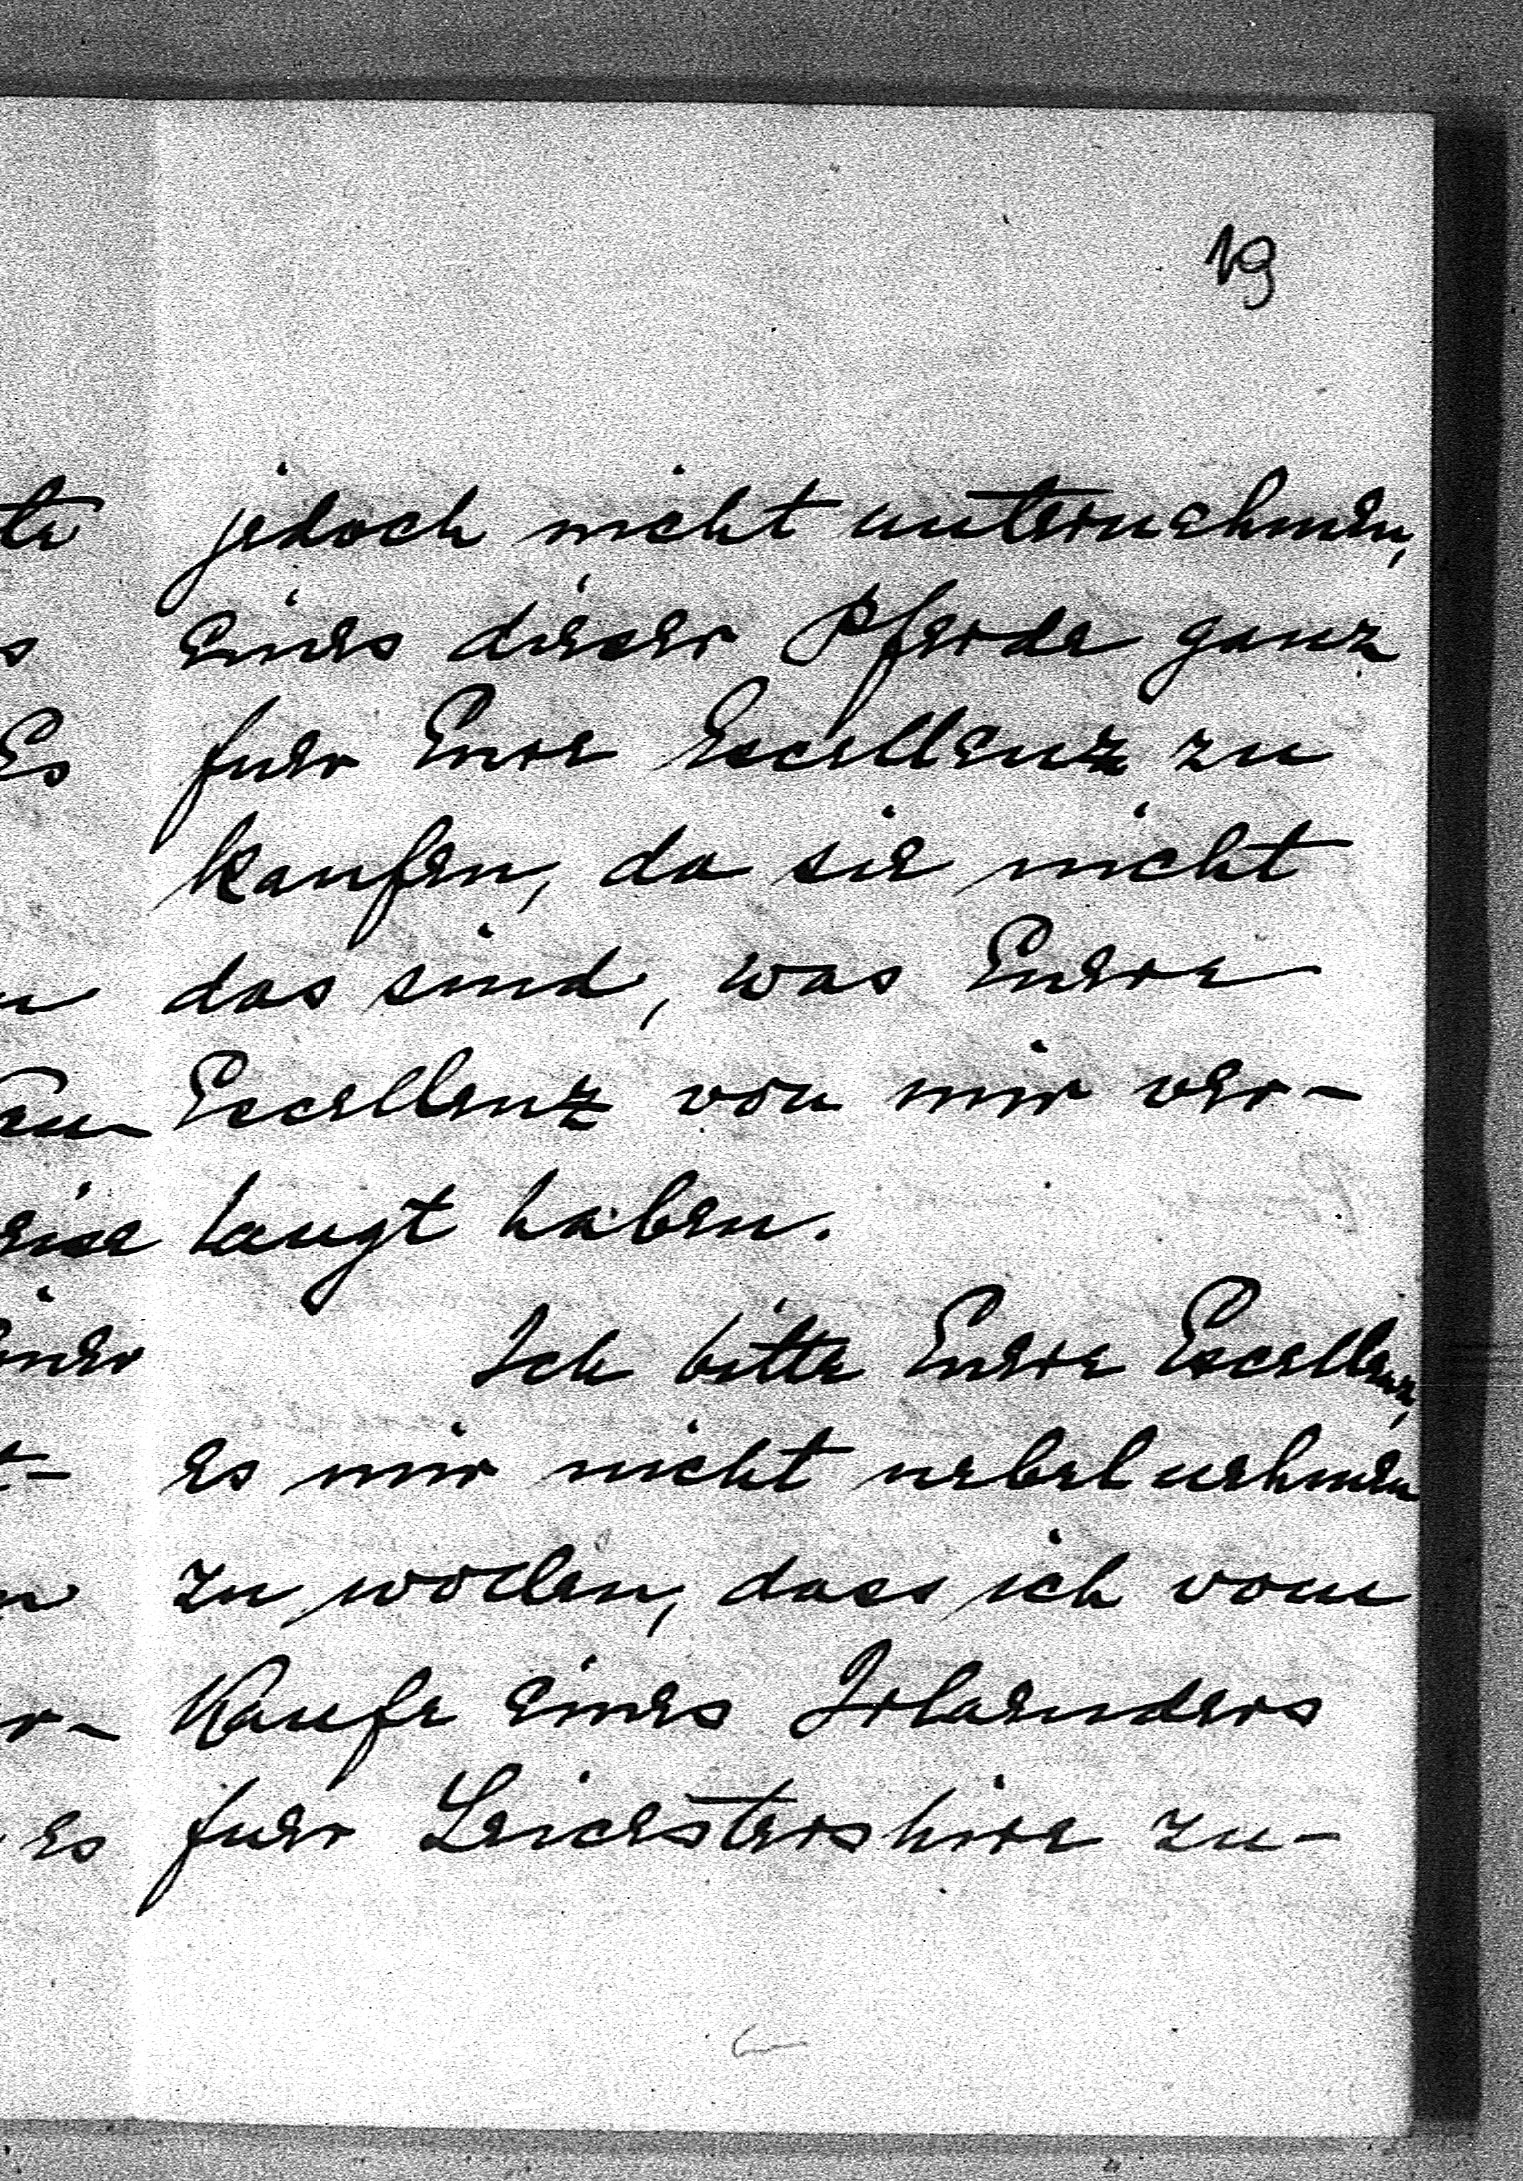 19
jedoch nicht unternehmen,
eines dieser Pferde ganz
fuer Eure Excellenz zu
kaufen, da sie nicht
das sind, was Euere
Excellenz von mir ver-
langt haben.
Ich bitte Euere Excellenz,
es mir nicht uebel nehmen
zu wollen, dass ich vom
Kaufe eines Irlaenders
fuer Leicestershire zu-